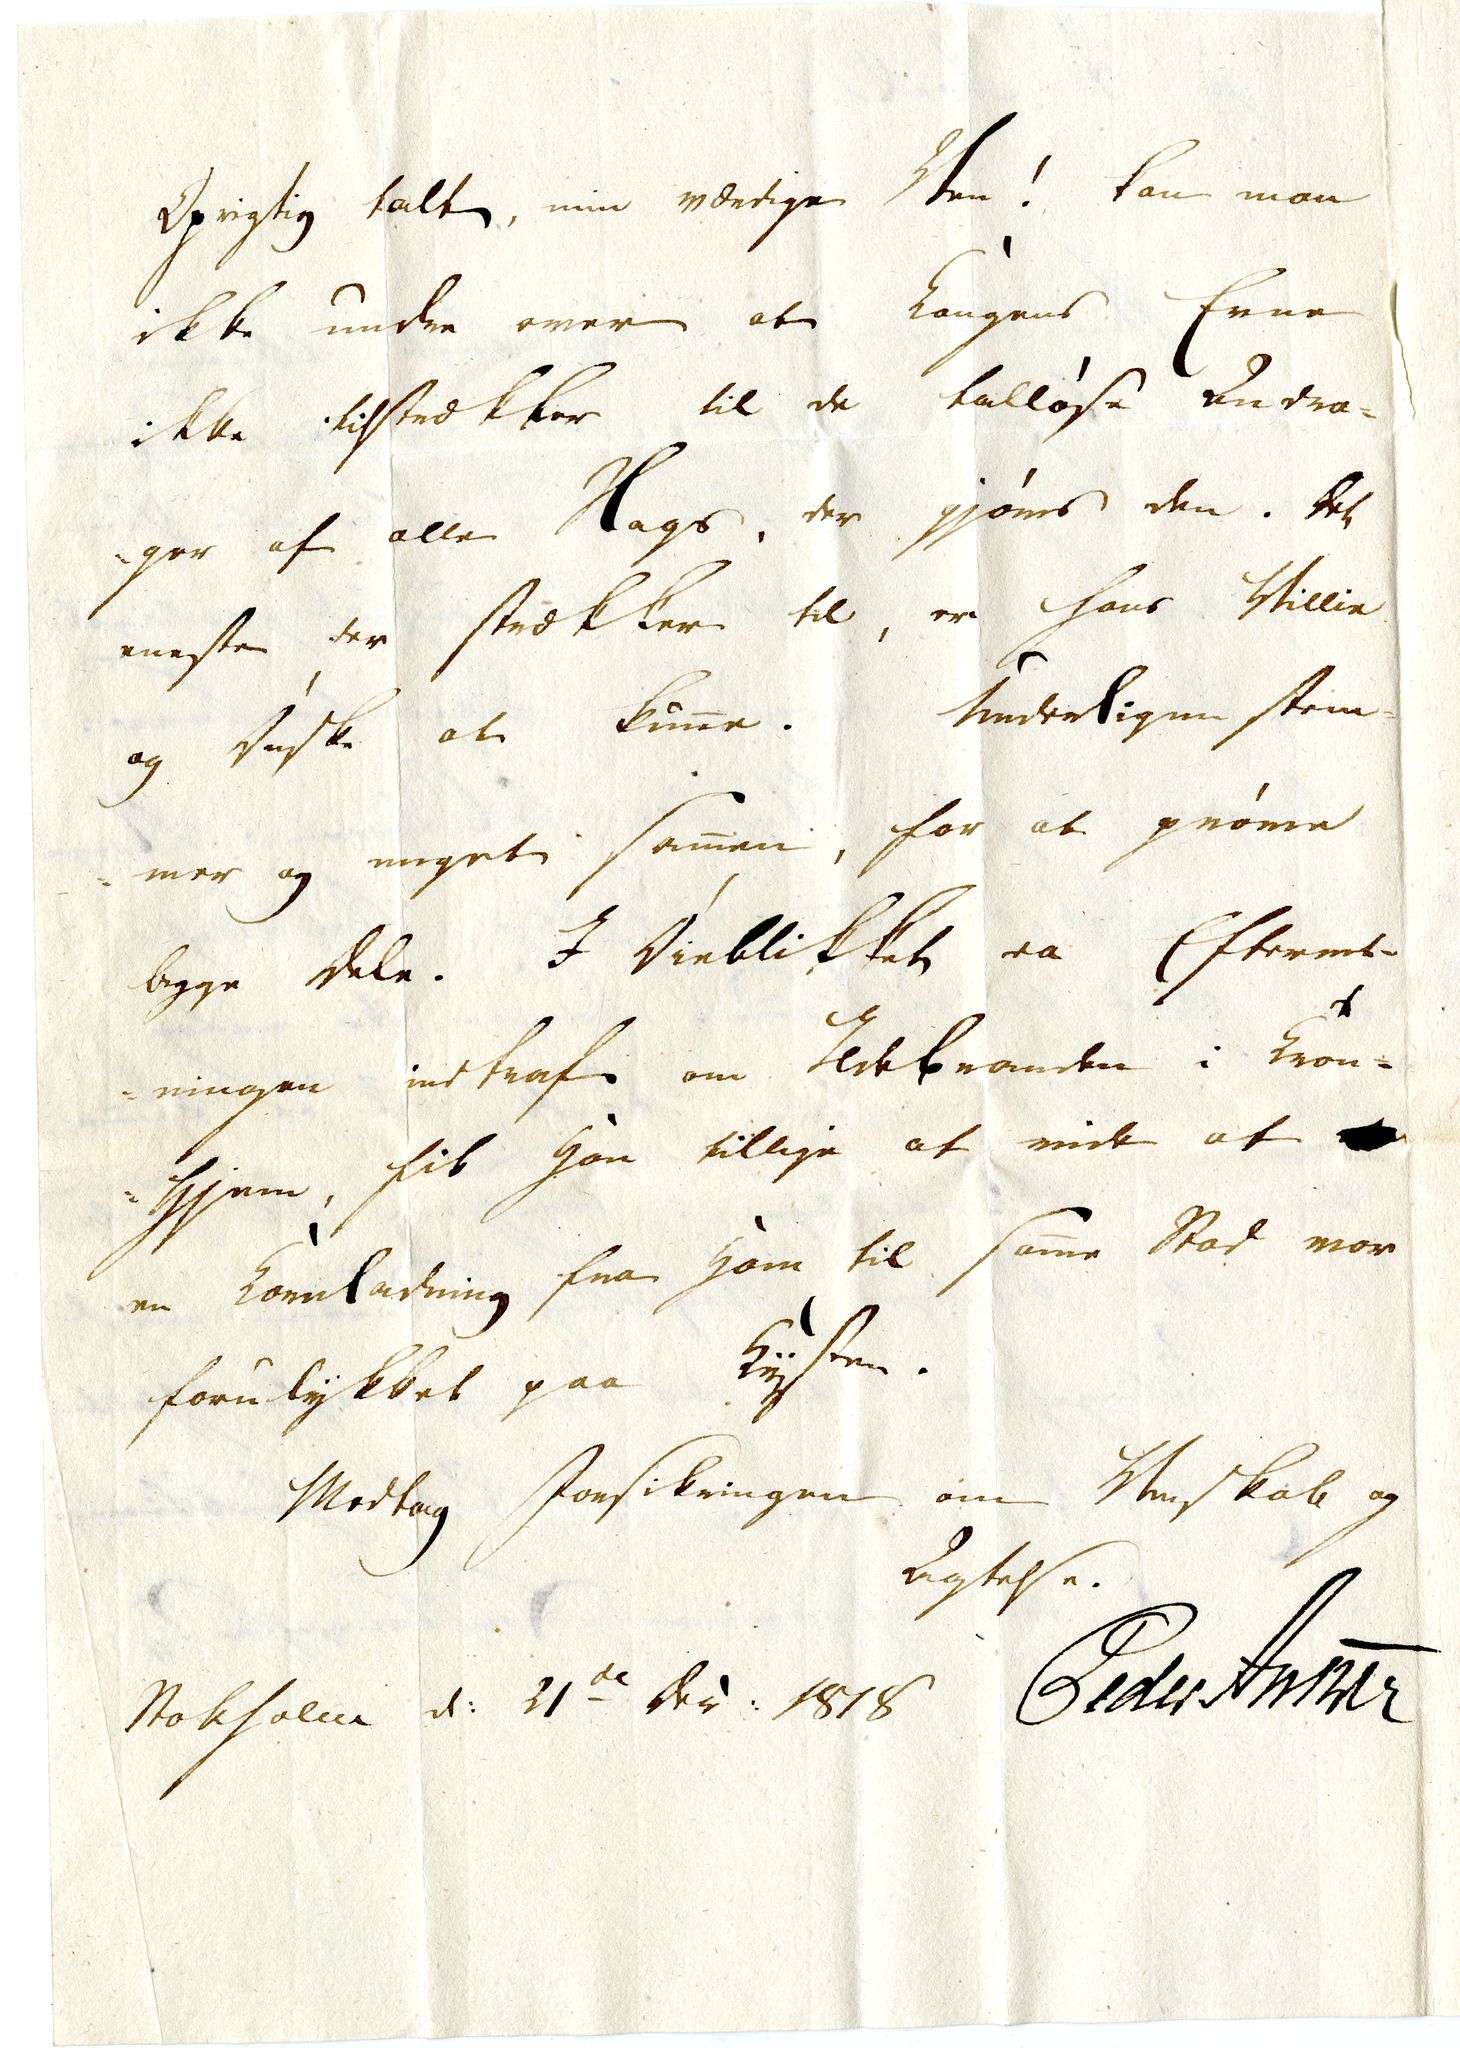 Oprigtig talt, min værdige Ven! kan man
ikke undre over at Kongens Evne
ikke tilstrækker til de talløse Andra-
-ger af alle Slags, der gjøres den. Det
eneste der strækker til, er hans Villie
og Ønske at kunne. Underligen stem-
-mer og meget sammen, for at prøve
begge Dele. I Øieblikket da Efterret-
-ningen indtraf om Ildebranden i Tron-
-hjem, fik Han tillige at vide at
en Kornladning fra Ham til samme Stad var
forulykket paa Kysten.
Modtag Forsikringen om Venskab og
Agtelse.
Stokholm d: 21de Dec: 1818 Peder Anker